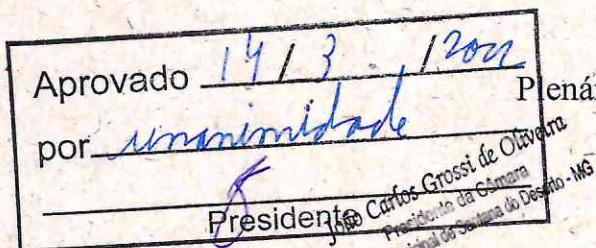 Aprovado 14 / 3 / 2022
Plenár
por unanimidade
Presidente
João Carlos Grossi de Oliveira
Presidente da Câmara
Municipal de Santana do Deserto - MG